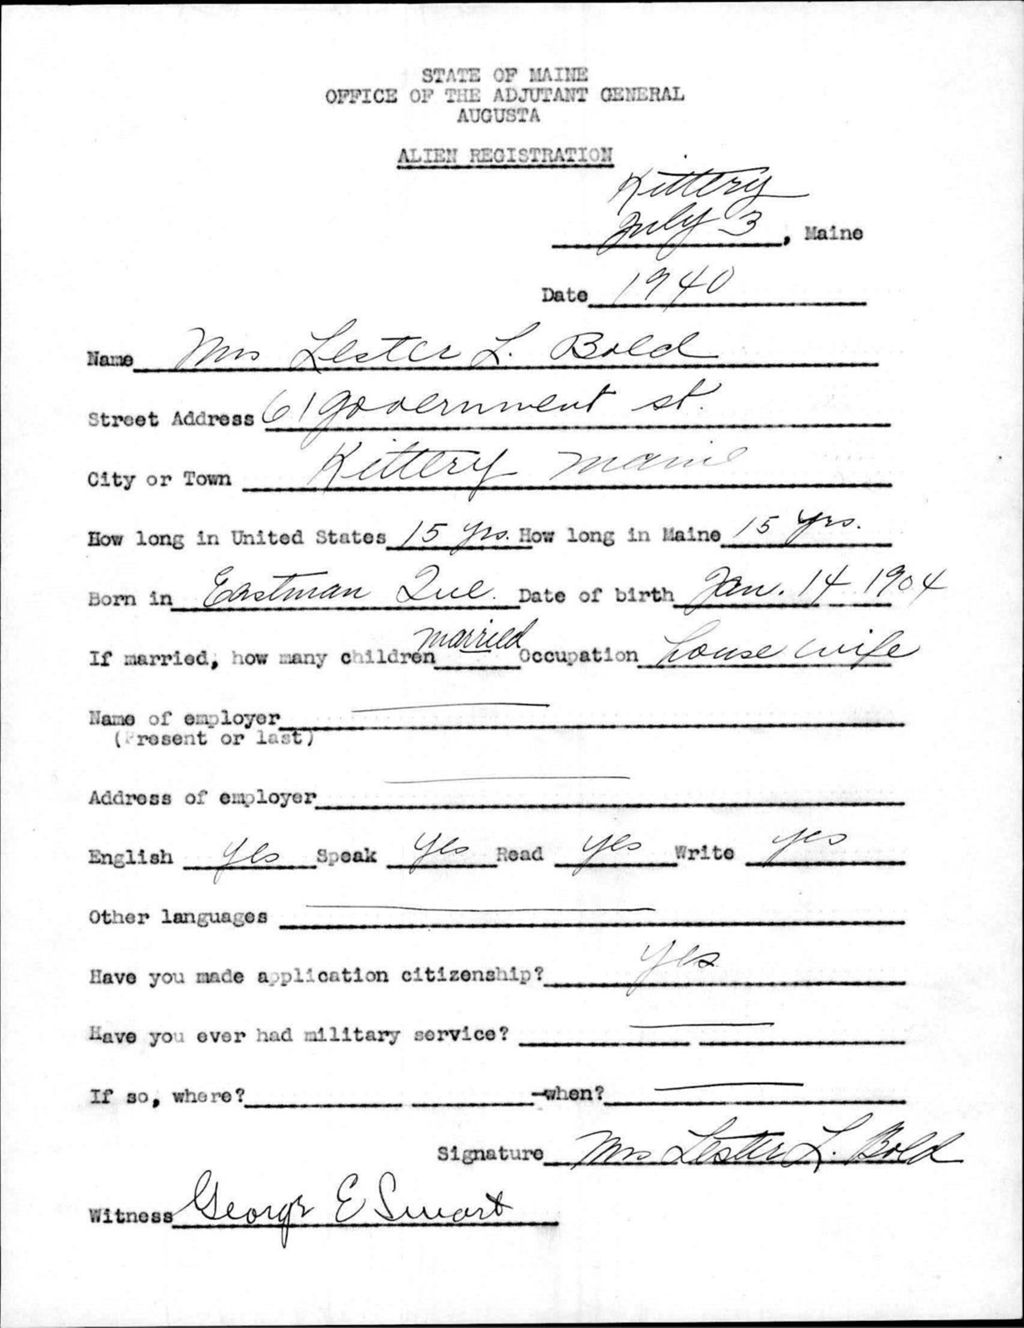 STATE OF MAINE
OFFICE OF THE ADJUTANT GENERAL
AUGUSTA
ALIEN REGISTRATION
Kittery
July 3, Maine
Date 1940
Name Mrs Lester L. Bold
Street Address 61 Government st.
City or Town Kittery Maine
How long in United States 15 yrs. How long in Maine 15 yrs.
Born in Eastman Que. Date of birth Jan. 14 1904
If married, how many children married Occupation house wife
Name of employer
(Present or last)
Address of employer
English yes Speak yes Read yes Write yes
Other languages
Have you made application citizenship? yes
Have you ever had military service?
If so, where? -when?
Signature Mrs Lester L. Bold
Witness George E Swart